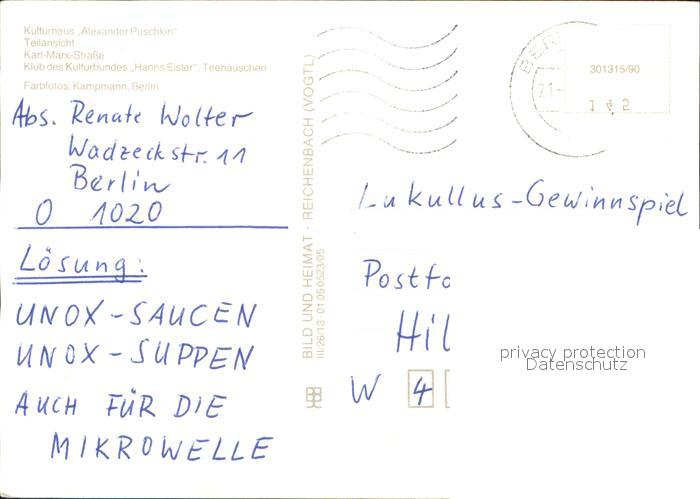 Kulturhaus „Alexander Puschkin"
Teilansicht
Karl-Marx-Straße
Klub des Kulturbundes „Hanns Eisler", Teehäuschen
Farbfotos: Kampmann, Berlin
Abs. Renate Wolter
Wadzeckstr. 11
Berlin
O 1020
Lösung:
UNOX-SAUCEN
UNOX-SUPPEN
AUCH FÜR DIE
MIKROWELLE
BILD UND HEIMAT · REICHENBACH (VOGTL)
III/26/13 01 05 0523/05
BER
21.-
301315/90
Lukullus-Gewinnspiel
Postfa
Hil
W 4
privacy protection
Datenschutz